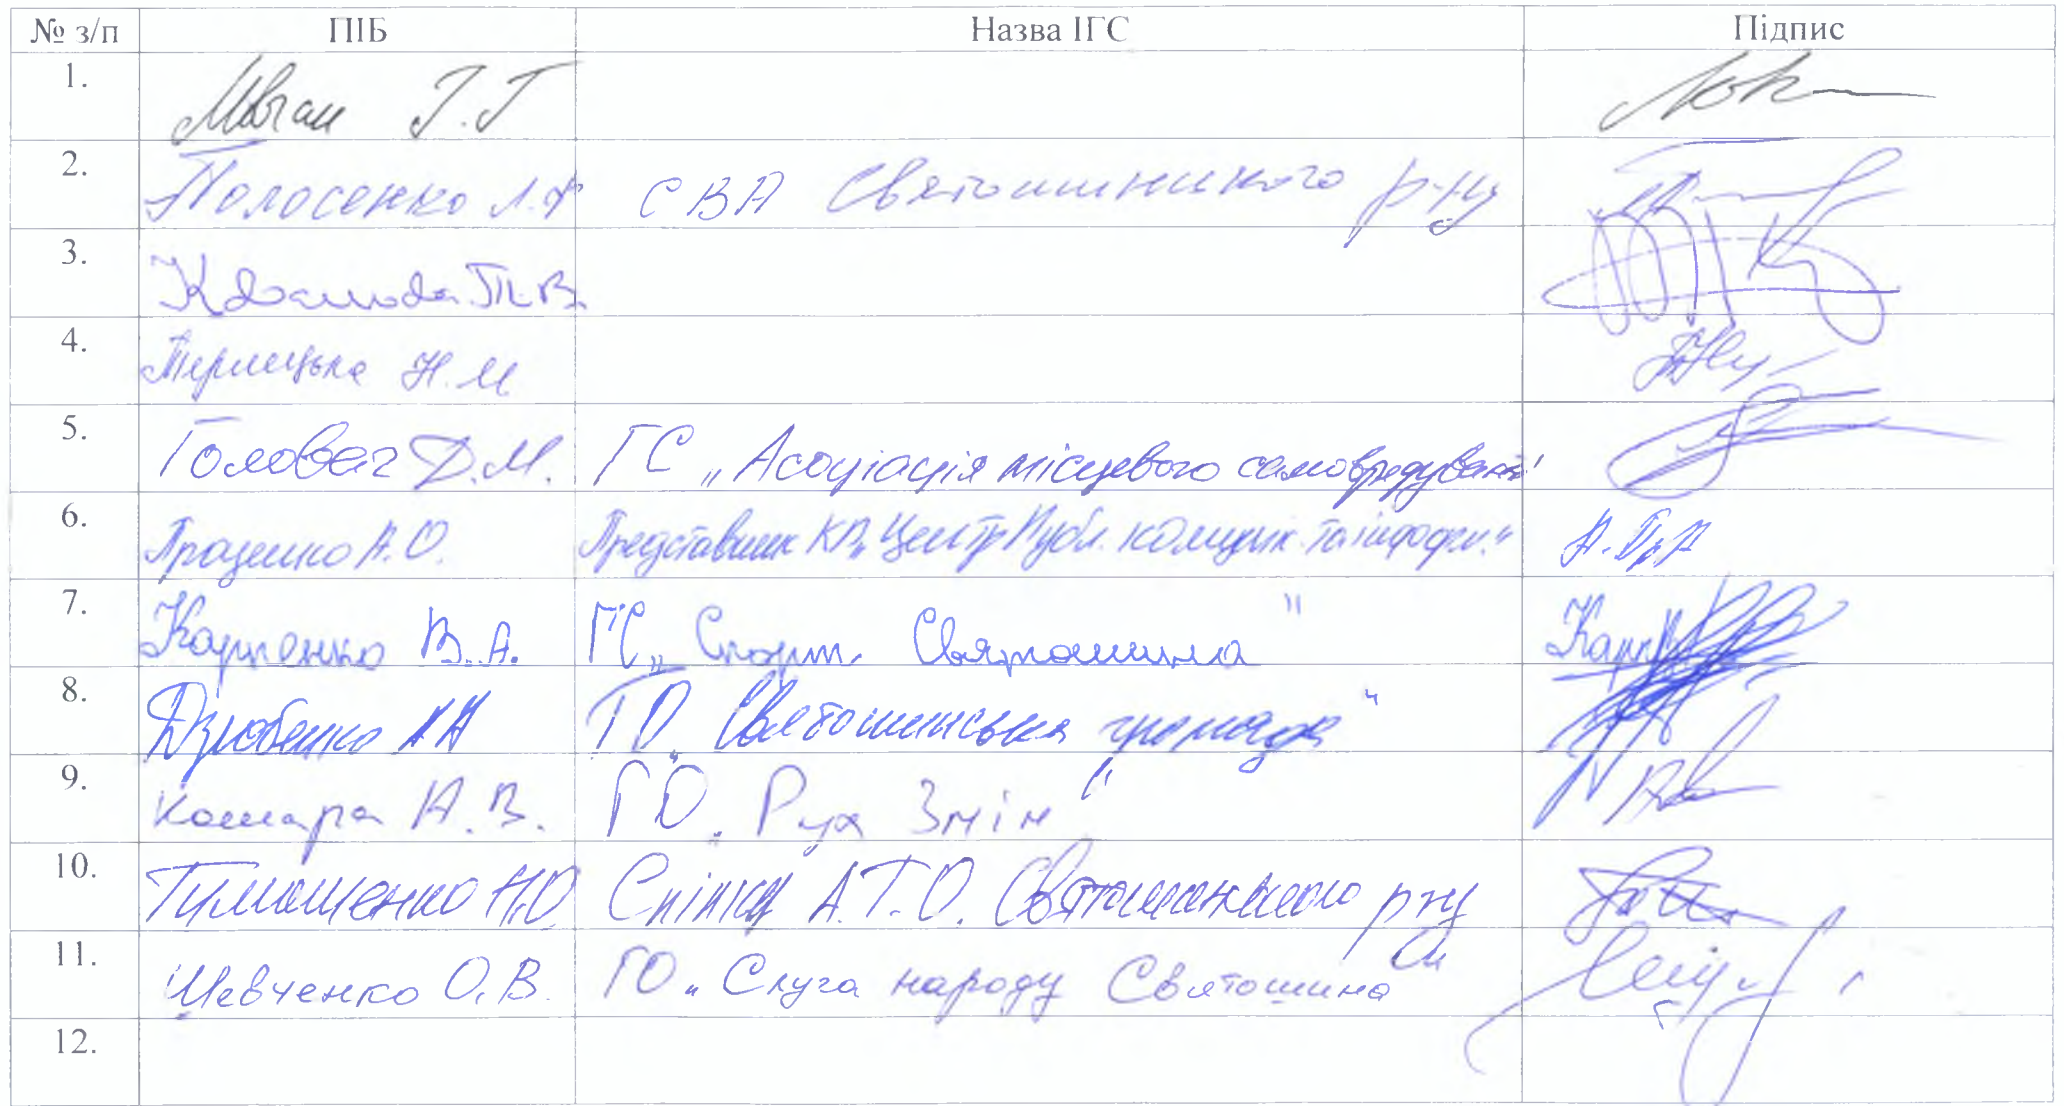 № з/п ПІБ Назва ІГС Підпис
1. Г.Г
2. Полосенко Л.Ф СВА Святошинського р-ну
3. Т.В.
4. Терлецька Н.М
5. Головач Д.М. ГС „Асоціація місцевого самоврядування"
6. Проценко А.О. Представник КП „Центр Публ. комунік. та інформ."
7. Карпенко В.А. ГС „Спорт Святошина"
8. Дзюбенко ГО „Святошинська громада"
9. Комара А.В. ГО „Рух Змін"
10. Тимошенко Н.О. Спілка А.Т.О. Святошинського р-ну
11. Шевченко О.В. ГО „Слуга народу Святошина"
12.